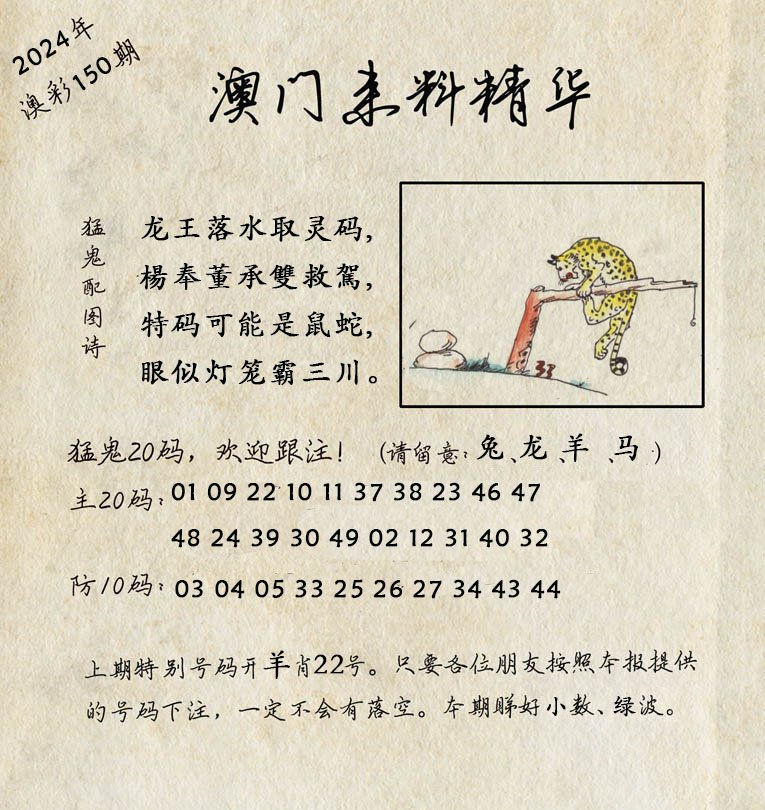 2024年
澳彩150期
澳门来料精华
猛鬼配图诗
龙王落水取灵码，
楊奉董承雙救駕，
特码可能是鼠蛇，
眼似灯笼霸三川。
33
猛鬼20码，欢迎跟注！（请留意：兔、龙、羊、马）
主20码：01 09 22 10 11 37 38 23 46 47
48 24 39 30 49 02 12 31 40 32
防10码：03 04 05 33 25 26 27 34 43 44
上期特别号码开羊肖22号。只要各位朋友按照本报提供
的号码下注，一定不会有落空。本期睇好小数、绿波。